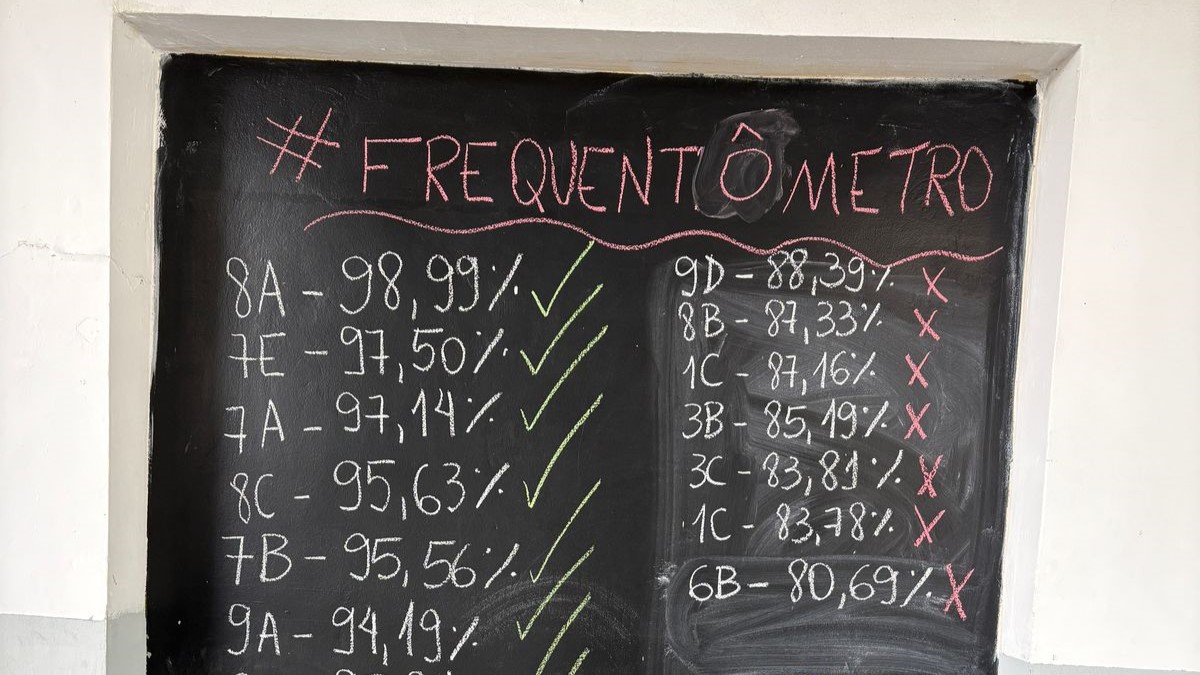 # FREQUENTÔMETRO
8A - 98,99%
7E - 97,50%
7A - 97,14%
8C - 95,63%
7B - 95,56%
9A - 94,19%
9D - 88,39%
8B - 87,33%
1C - 87,16%
3B - 85,19%
3C - 83,81%
1C - 83,78%
6B - 80,69%